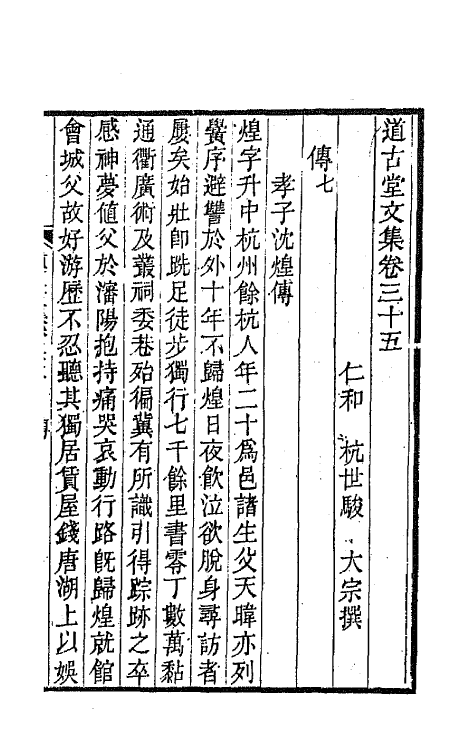 道古堂文集卷三十五
仁和 杭世駿 大宗撰
傳七
孝子沈煌傳
煌字升中杭州餘杭人年二十爲邑諸生父天暐亦列
黌序避讐於外十年不歸煌日夜飮泣欲脫身尋訪者
屢矣始壯卽跣足徒步獨行七千餘里書零丁數萬黏
通衢廣術及叢祠委巷殆徧冀有所識引得踪跡之卒
感神夢值父於瀋陽抱持痛哭哀動行路旣歸煌就館
會城父故好游歷不忍聽其獨居賃屋錢唐湖上以娛